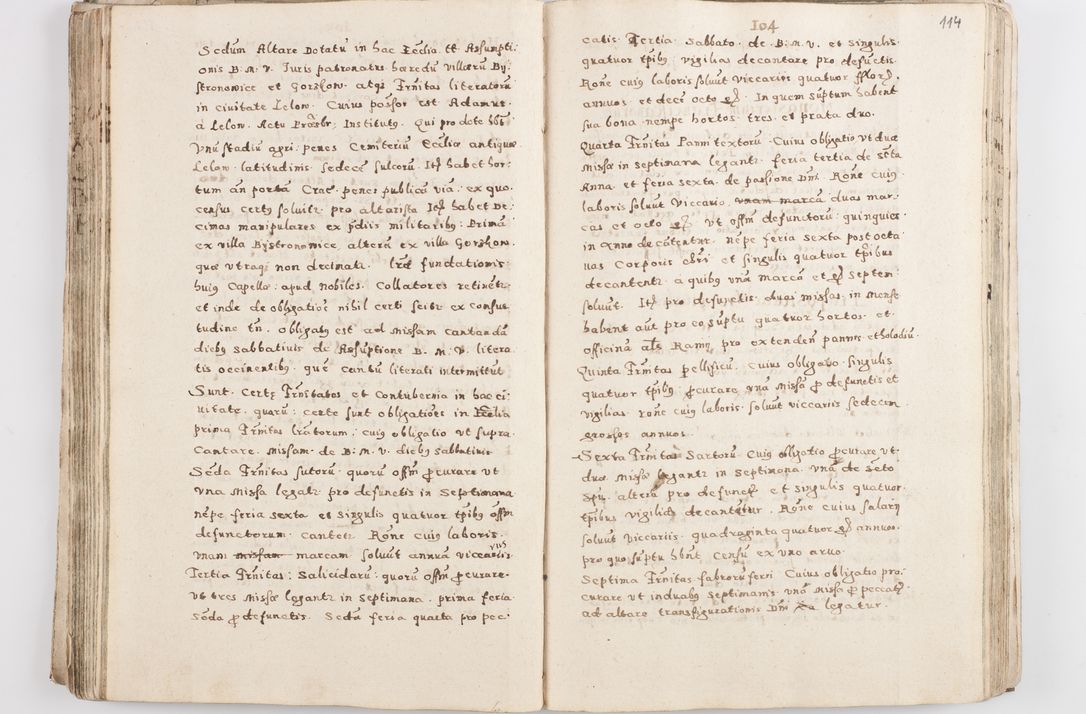 Sedum Altare Dotatū in hac Eccłia tt Assumpti
onis B. M. V. Iuris patronatus hæredū villarū By
stronowice et Gorzkow. atqȝ Frnitas literatorū
in ciuitate Lelow. Cuius possor est Adamus.
a Lelow. Actu Præsbr, Institutꝰ. Qui pro dote
Vnū stadiū agri: penes Cemiteriū Eccliæ antiquæ
Lelow. latitudinis sedecē sulcorū. Itē habet hor:
tum an portā Crac. penes publicā via: ex quo.
census certꝰ soluitr pro altarista Itē habet De:
cimas manipulares ex pdiis militaribꝰ. Primā
ex villa Bystronowice alterā ex villa Gorzkow.
quæ vtraqȝ non decimali. lræ fundationis
huiꝰ Capellæ: apud nobiles. Collatores retinetr
et inde de obligatioē nihil certi scitr ex consue
tudine tn. obligatꝰ est ad Missam cantandā
diebꝰ sabbatiuis de Assuptione B. M. V. litera
tis occinentibꝰ. quē cantū literati intermittūt
Sunt. Certę Frnitates et Contubernia in hac ci:
uitate. quarū: certe sunt obligatiōes in Ecclia
prima Frnitas lratorum. cuiꝰ obligatio vt supra.
Cantare. Missam. de B. M. V. diebꝰ sabbatiuis
Seda Frnitas sutorū. quorū offm pcurare vt
vna Missa legatr pro defunctis in Septimana
nępe. feria sexta et singulis quatuor tpibꝰ offm
defunctorum. cantetr Rone cuiꝰ laboris.
vnam missam marcam. soluūt annuā viccariis
Tertia Frnitas: Salicidarū: quorū offm pcurare.
vt tres Missæ legantr in Septimana. prima feria
Seda p defunctis. Seda feria quarta pro pec:
104
114
catis. Tertia. Sabbato. de. B. M. V. et Singulis.
quatuor tpibꝰ. vigilias decantare pro defuctis.
Rone cuiꝰ laboris soluūt viccariis quatuor fflor.
annuos. et decē octo gr. In quem sūptum habent
sua bona. nempe hortos. tres. et prata duo.
Quarta Frnitas Panni textorū. Cuius obligatio vt duæ
Missæ in septimana legantr. feria tertia de scta
Anna. et feria sexta. de passione Dni. Rone cuiꝰ
laboris soluūt Viccario. vnam marcā duas mar:
cas et octo gr. vt offm defunctorū: quinquies.
in Anno decātentur. nępe feria sexta post octa
uas Corporis chri et singulis quatuor tpibus
decantentr. a quibꝰ vnā marcā et gr septem
soluūt. Itē pro defunctis. duas missas. in mense
habent aūt pro eo sūptu quatuor hortos. et.
officinā als Ramy. pro extendendis pannis et
Quinta Frnitas pellificū. cuius obligatio. singulis
quatuor tpibꝰ. pcurare vnā Missā p defunctis et
vigilias. rone cuiꝰ laboris. soluūt viccariis sedecem
grossos annuos.
Sexta Frnitas Sartorū. Cuiꝰ obligatio pcurare vt.
duæ Missæ legantr in Septimana. vnā de Scto
Spū. altera pro defunctis. et Singulis quatuor.
tpibus vigiliæ decantētur. Rone cuius salarij
soluūt viccariis quadraginta quatuor gr annuos.
pro quo sūptu hbnt Censū ex vno aruo.
Septima Frnitas fabrorū ferri Cuius obligatio pro:
curare vt in duabꝰ Septimanis vnā Missā p peccatis
ad altare transfigurationis Dni legatur.